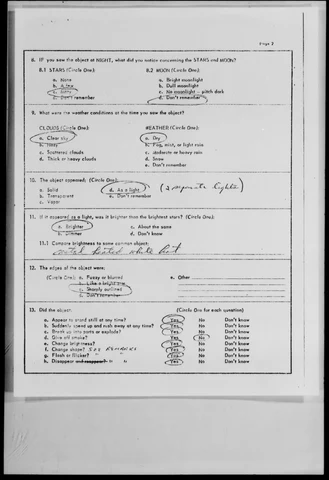 Page 3
8. IF you saw the object at NIGHT, what did you notice concerning the STARS and MOON?
8.1 STARS (Circle One): 8.2 MOON (Circle One):
a. None a. Bright moonlight
b. A few b. Dull moonlight
c. Many c. No moonlight – pitch dark
d. Don't remember d. Don't remember
9. What were the weather conditions at the time you saw the object?
CLOUDS (Circle One): WEATHER (Circle One):
a. Clear sky a. Dry
b. Hazy b. Fog, mist, or light rain
c. Scattered clouds c. Moderate or heavy rain
d. Thick or heavy clouds d. Snow
e. Don't remember
10. The object appeared: (Circle One):
a. Solid d. As a light (3 separate lights)
b. Transparent e. Don't remember
c. Vapor
11. If it appeared as a light, was it brighter than the brightest stars? (Circle One):
a. Brighter c. About the same
b. Dimmer d. Don't know
11.1 Compare brightness to some common object:
metal heated white hot
12. The edges of the object were:
(Circle One): a. Fuzzy or blurred e. Other
b. Like a bright star
c. Sharply outlined
d. Don't remember
13. Did the object: (Circle One for each question)
a. Appear to stand still at any time? Yes No Don't know
b. Suddenly speed up and rush away at any time? Yes No Don't know
c. Break up into parts or explode? Yes No Don't know
d. Give off smoke? Yes No Don't know
e. Change brightness? Yes No Don't know
f. Change shape? SEE REMARKS Yes No Don't know
g. Flash or flicker? Yes No Don't know
h. Disappear and reappear? Yes No Don't know